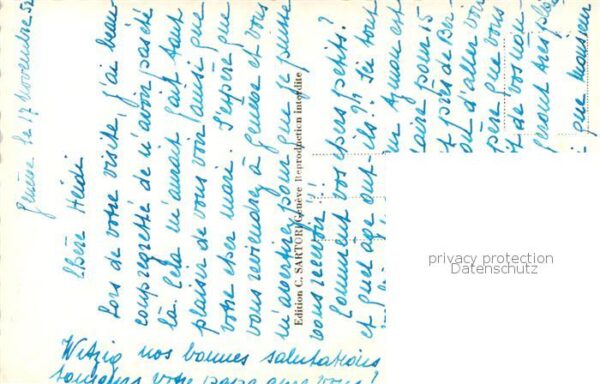 Genève le 17 Novembre 52
Chère Heidi
Lors de votre visite, j'ai bien
compregretté de n'avoir pas été
là. Cela m'aurait fait tant
plaisir de vous voir (ainsi que
votre cher mari. J'espère que
vous reviendrez à Genève et vous
m'avertirez pour que je puisse
vous recevoir!!
Comment vos chers petits?
et quel âge ont-ils?! Ici tout
est Aymon est
laire pour 15
près de Ber
d'aller voir
père que vous
ot de vos
seront très
que Monsieur
Witzig nos bonnes salutations
toujours votre
Edition C. SARTORI Genève Reproduction interdite
privacy protection
Datenschutz